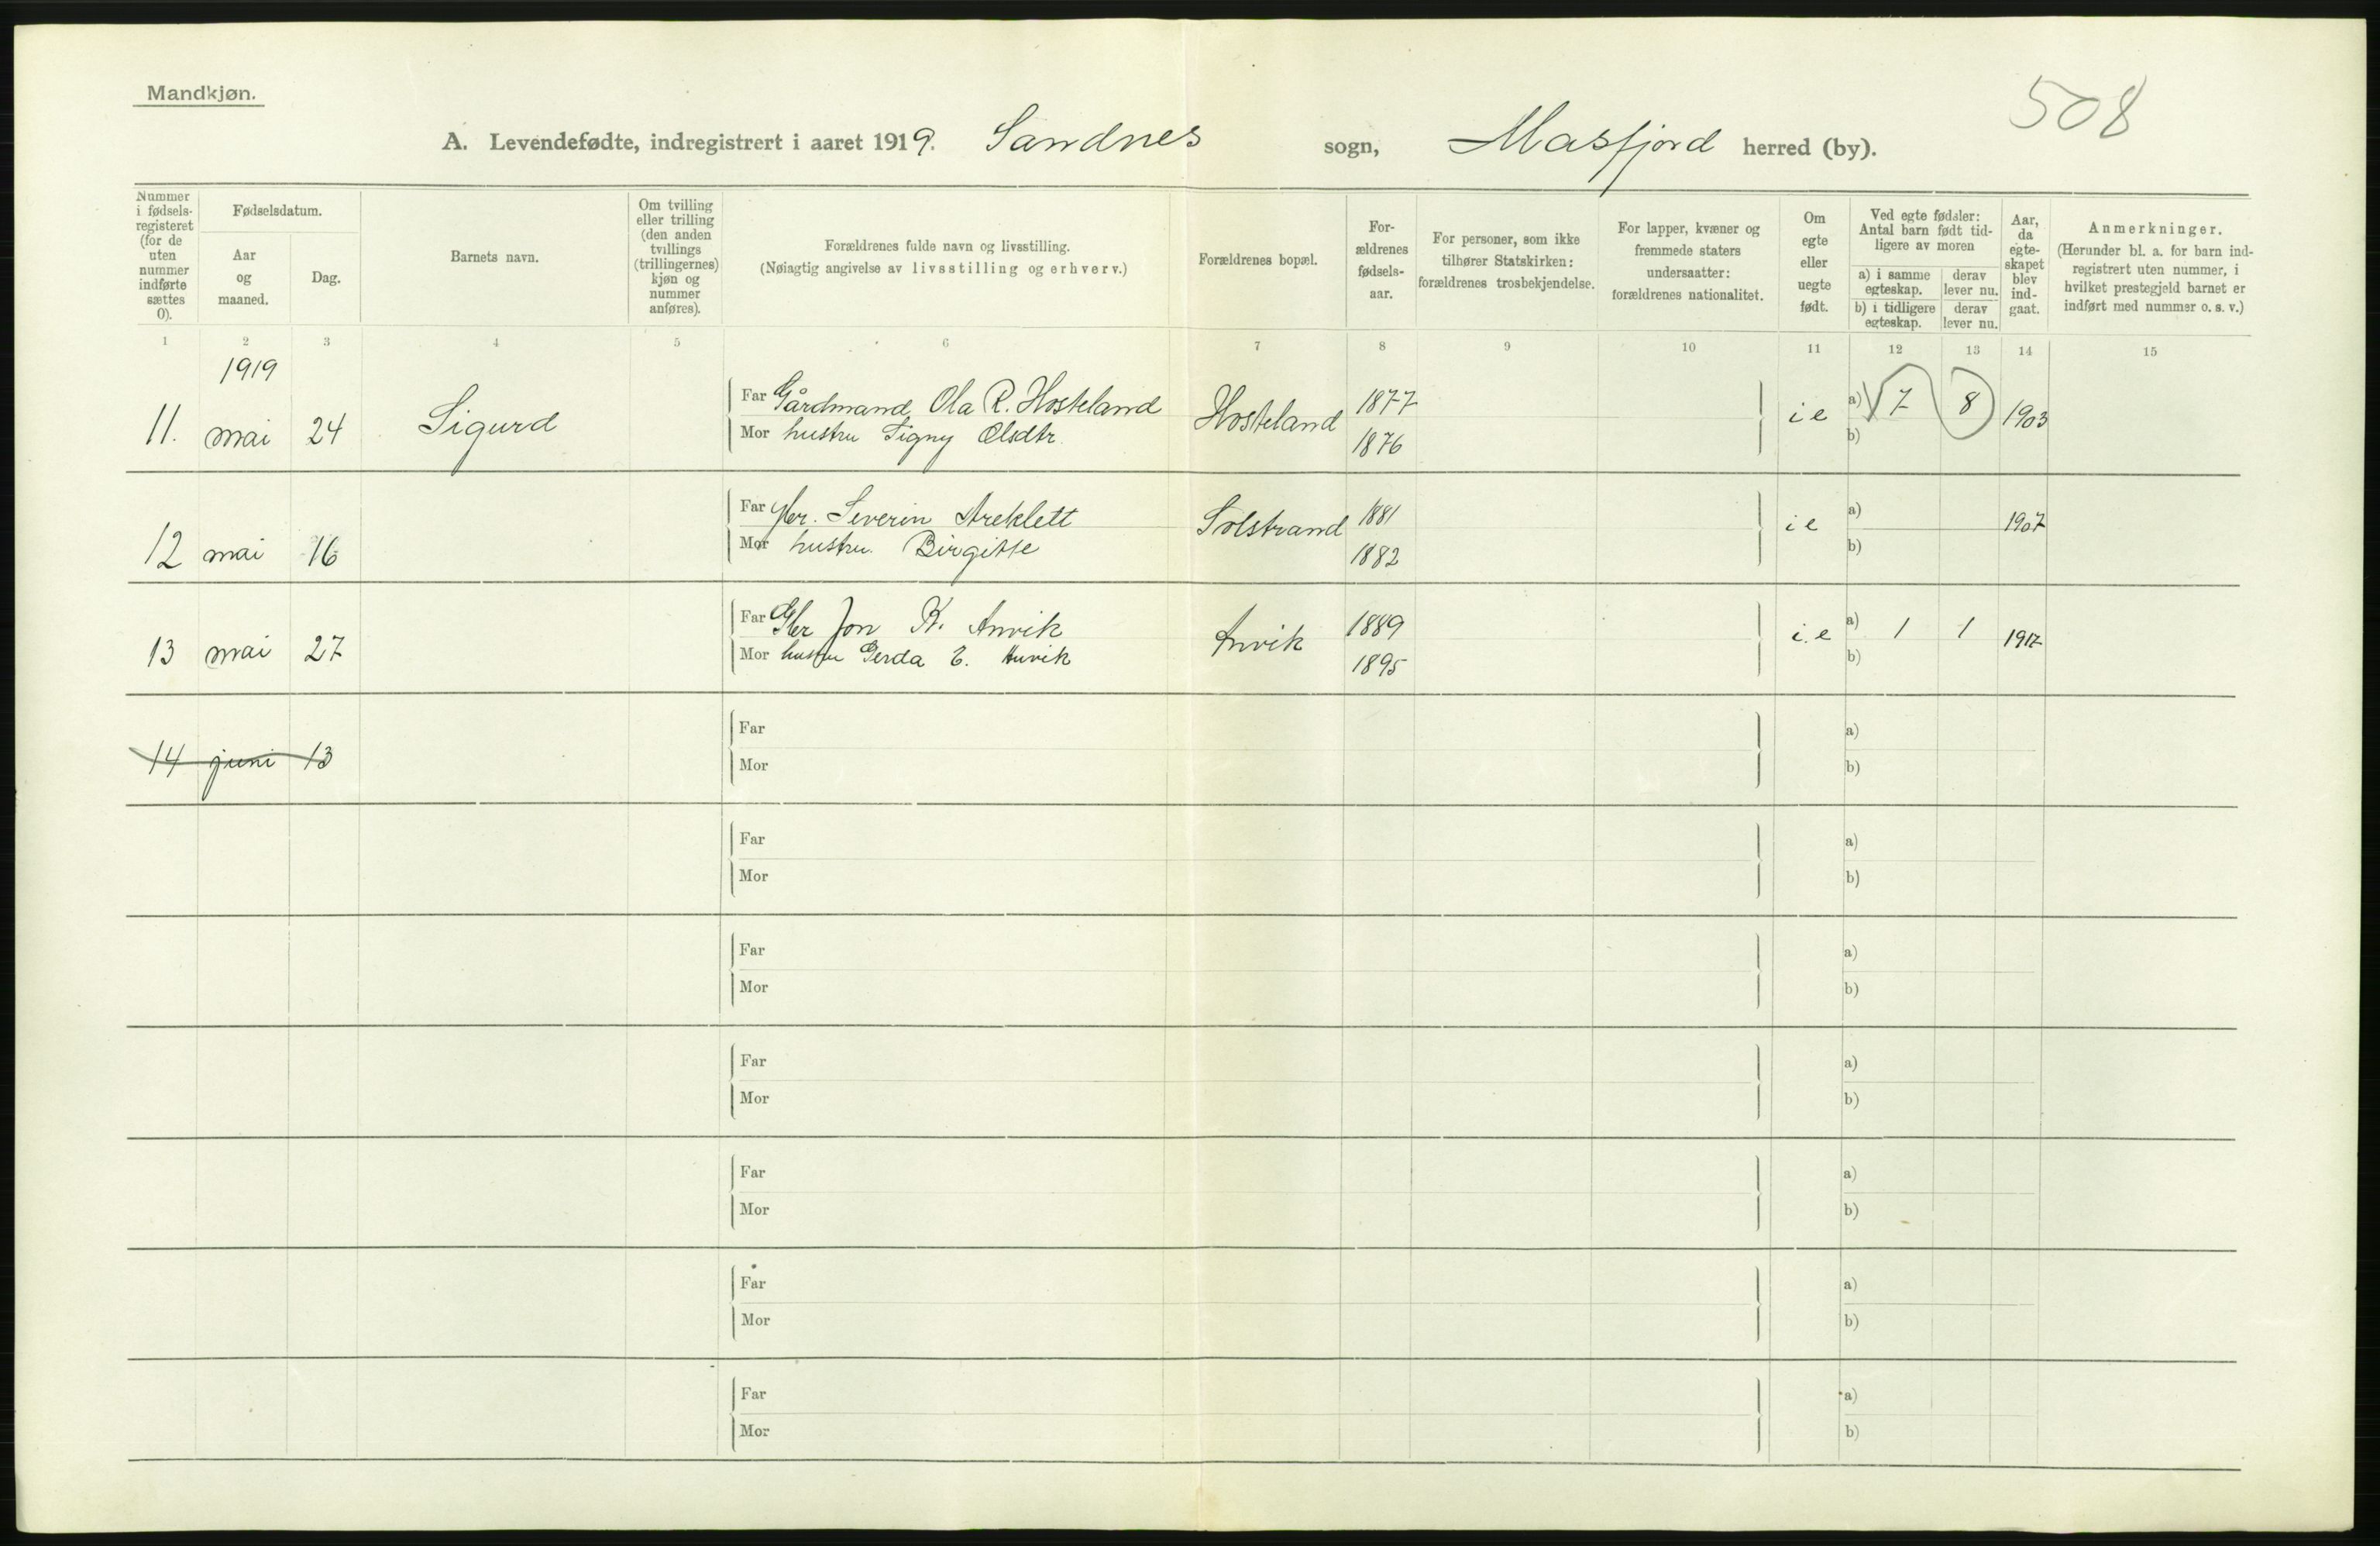 Mandkjøn.
508
A. Levendefødte, indregistrert i aaret 1919. Sandnes sogn, Masfjord herred (by).
Nummer i fødsels-registeret (for de uten nummer indførte sættes 0).
Fødselsdatum.
Aar og maaned.
Dag.
Barnets navn.
Om tvilling eller trilling (den anden tvillings (trillingernes) kjøn og nummer anføres).
Forældrenes fulde navn og livsstilling.
(Nøiagtig angivelse av livsstilling og erhverv.)
Forældrenes bopæl.
For-ældrenes fødsels-aar.
For personer, som ikke tilhører Statskirken: forældrenes trosbekjendelse.
For lapper, kvæner og fremmede staters undersaatter: forældrenes nationalitet.
Om egte eller uegte født.
Ved egte fødsler: Antal barn født tid-ligere av moren
a) i samme egteskap.
derav lever nu.
b) i tidligere egteskap.
derav lever nu.
Aar, da egte-skapet blev ind-gaat.
Anmerkninger.
(Herunder bl. a. for barn ind-registrert uten nummer, i hvilket prestegjeld barnet er indført med nummer o. s. v.)
1 2 3 4 5 6 7 8 9 10 11 12 13 14 15
1919
11. mai 24 Sigurd
Far Gårdmand Ola R. Hosteland
Mor hustru Signy Olsdtr.
Hosteland 1877 1876 i e a) 7 8 b) 1903
12 mai 16
Far Severin
Mor hustru. Birgitte
Solstrand 1881 1882 i e a) b) 1907
13 mai 27
Far Gbr Jon K. Anvik
Mor hustru Gerda E. Anvik
Anvik 1889 1895 i. e a) 1 1 b) 1917
14 juni 13
Far a)
Mor b)
Far a)
Mor b)
Far a)
Mor b)
Far a)
Mor b)
Far a)
Mor b)
Far a)
Mor b)
Far a)
Mor b)